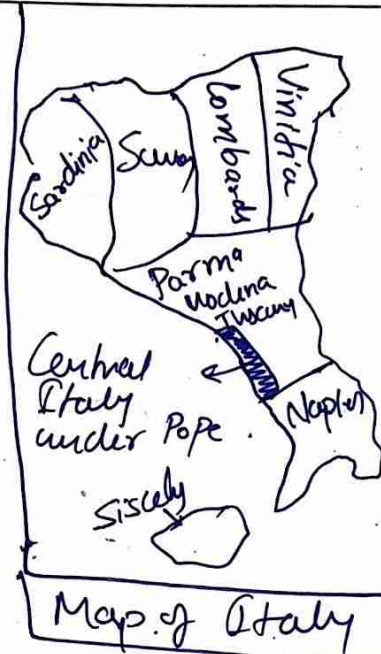 Sardinia
Savoy
Lombards
Vinitia
Parma
Modena
Tuscany
Central
Italy
under Pope.
Naples
Siscely
Map of Italy